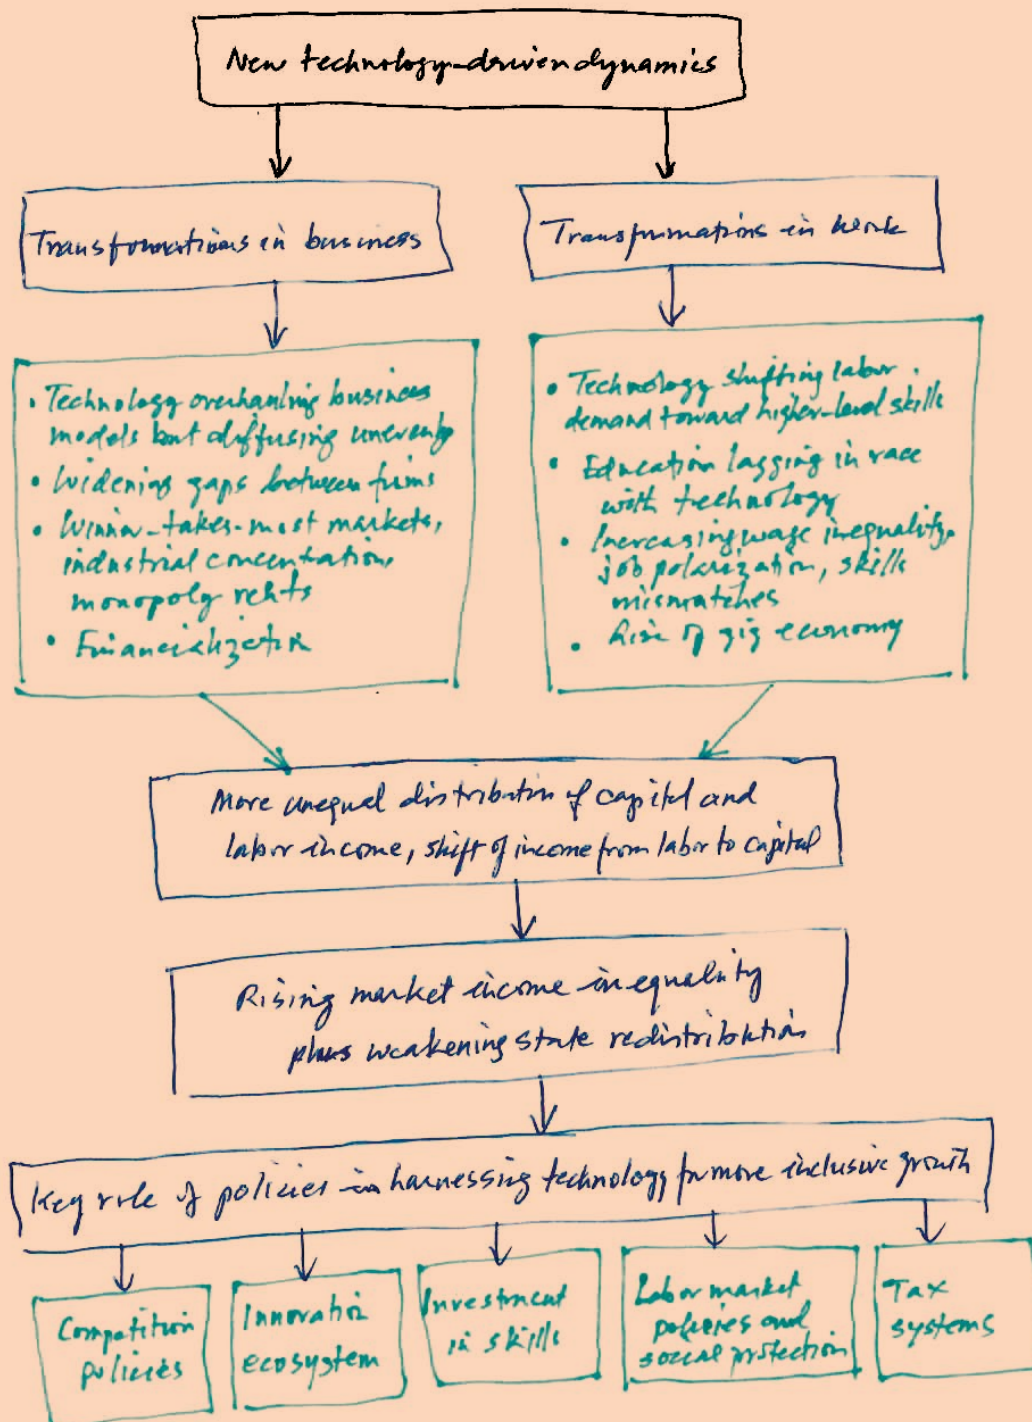 New technology-driven dynamics
Transformations in business
Transformations in work
• Technology overhauling business
models but diffusing unevenly
• Widening gaps between firms
• Winner-takes-most markets,
industrial concentration,
monopoly rents
• Financialization
• Technology shifting labor
demand toward higher-level skills
• Education lagging in race
with technology
• Increasing wage inequality,
job polarization, skills
mismatches
• Rise of gig economy
More unequal distribution of capital and
labor income, shift of income from labor to capital
Rising market income inequality
plus weakening state redistribution
Key role of policies in harnessing technology for more inclusive growth
Competition
policies
Innovation
ecosystem
Investment
in skills
Labor market
policies and
social protection
Tax
systems